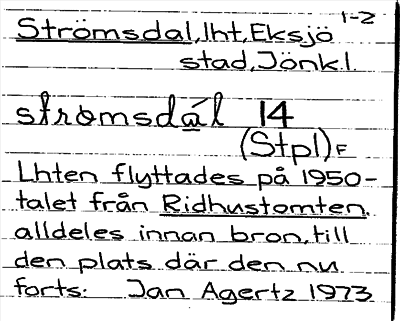 1-2
Strömsdal, lht, Eksjö
stad, Jönk.l.
strømsdál 14
(Stpl) F
Lhten flyttades på 1950-
talet från Ridhustomten.
alldeles innan bron, till
den plats där den nu
forts: Jan Agertz 1973